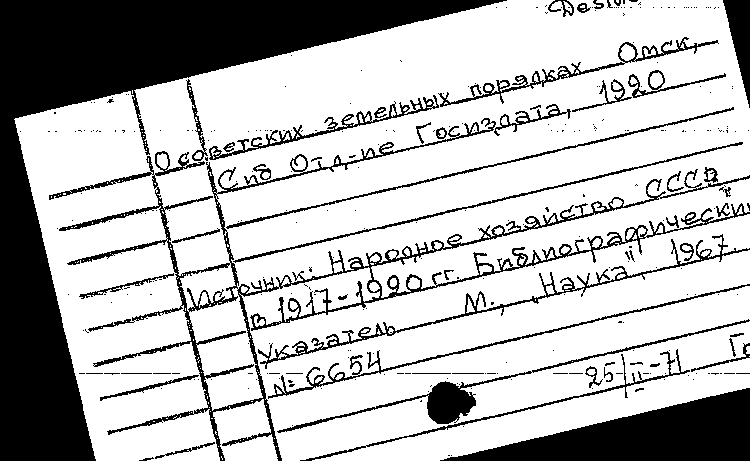 О советских земельных порядках Омск,
Сиб Отд-ие Госиздата, 1920
Источник: Народное хозяйство СССР
в 1917-1920 гг. Библиографический
указатель М., „Наука", 1967.
№ 6654
25/II-71